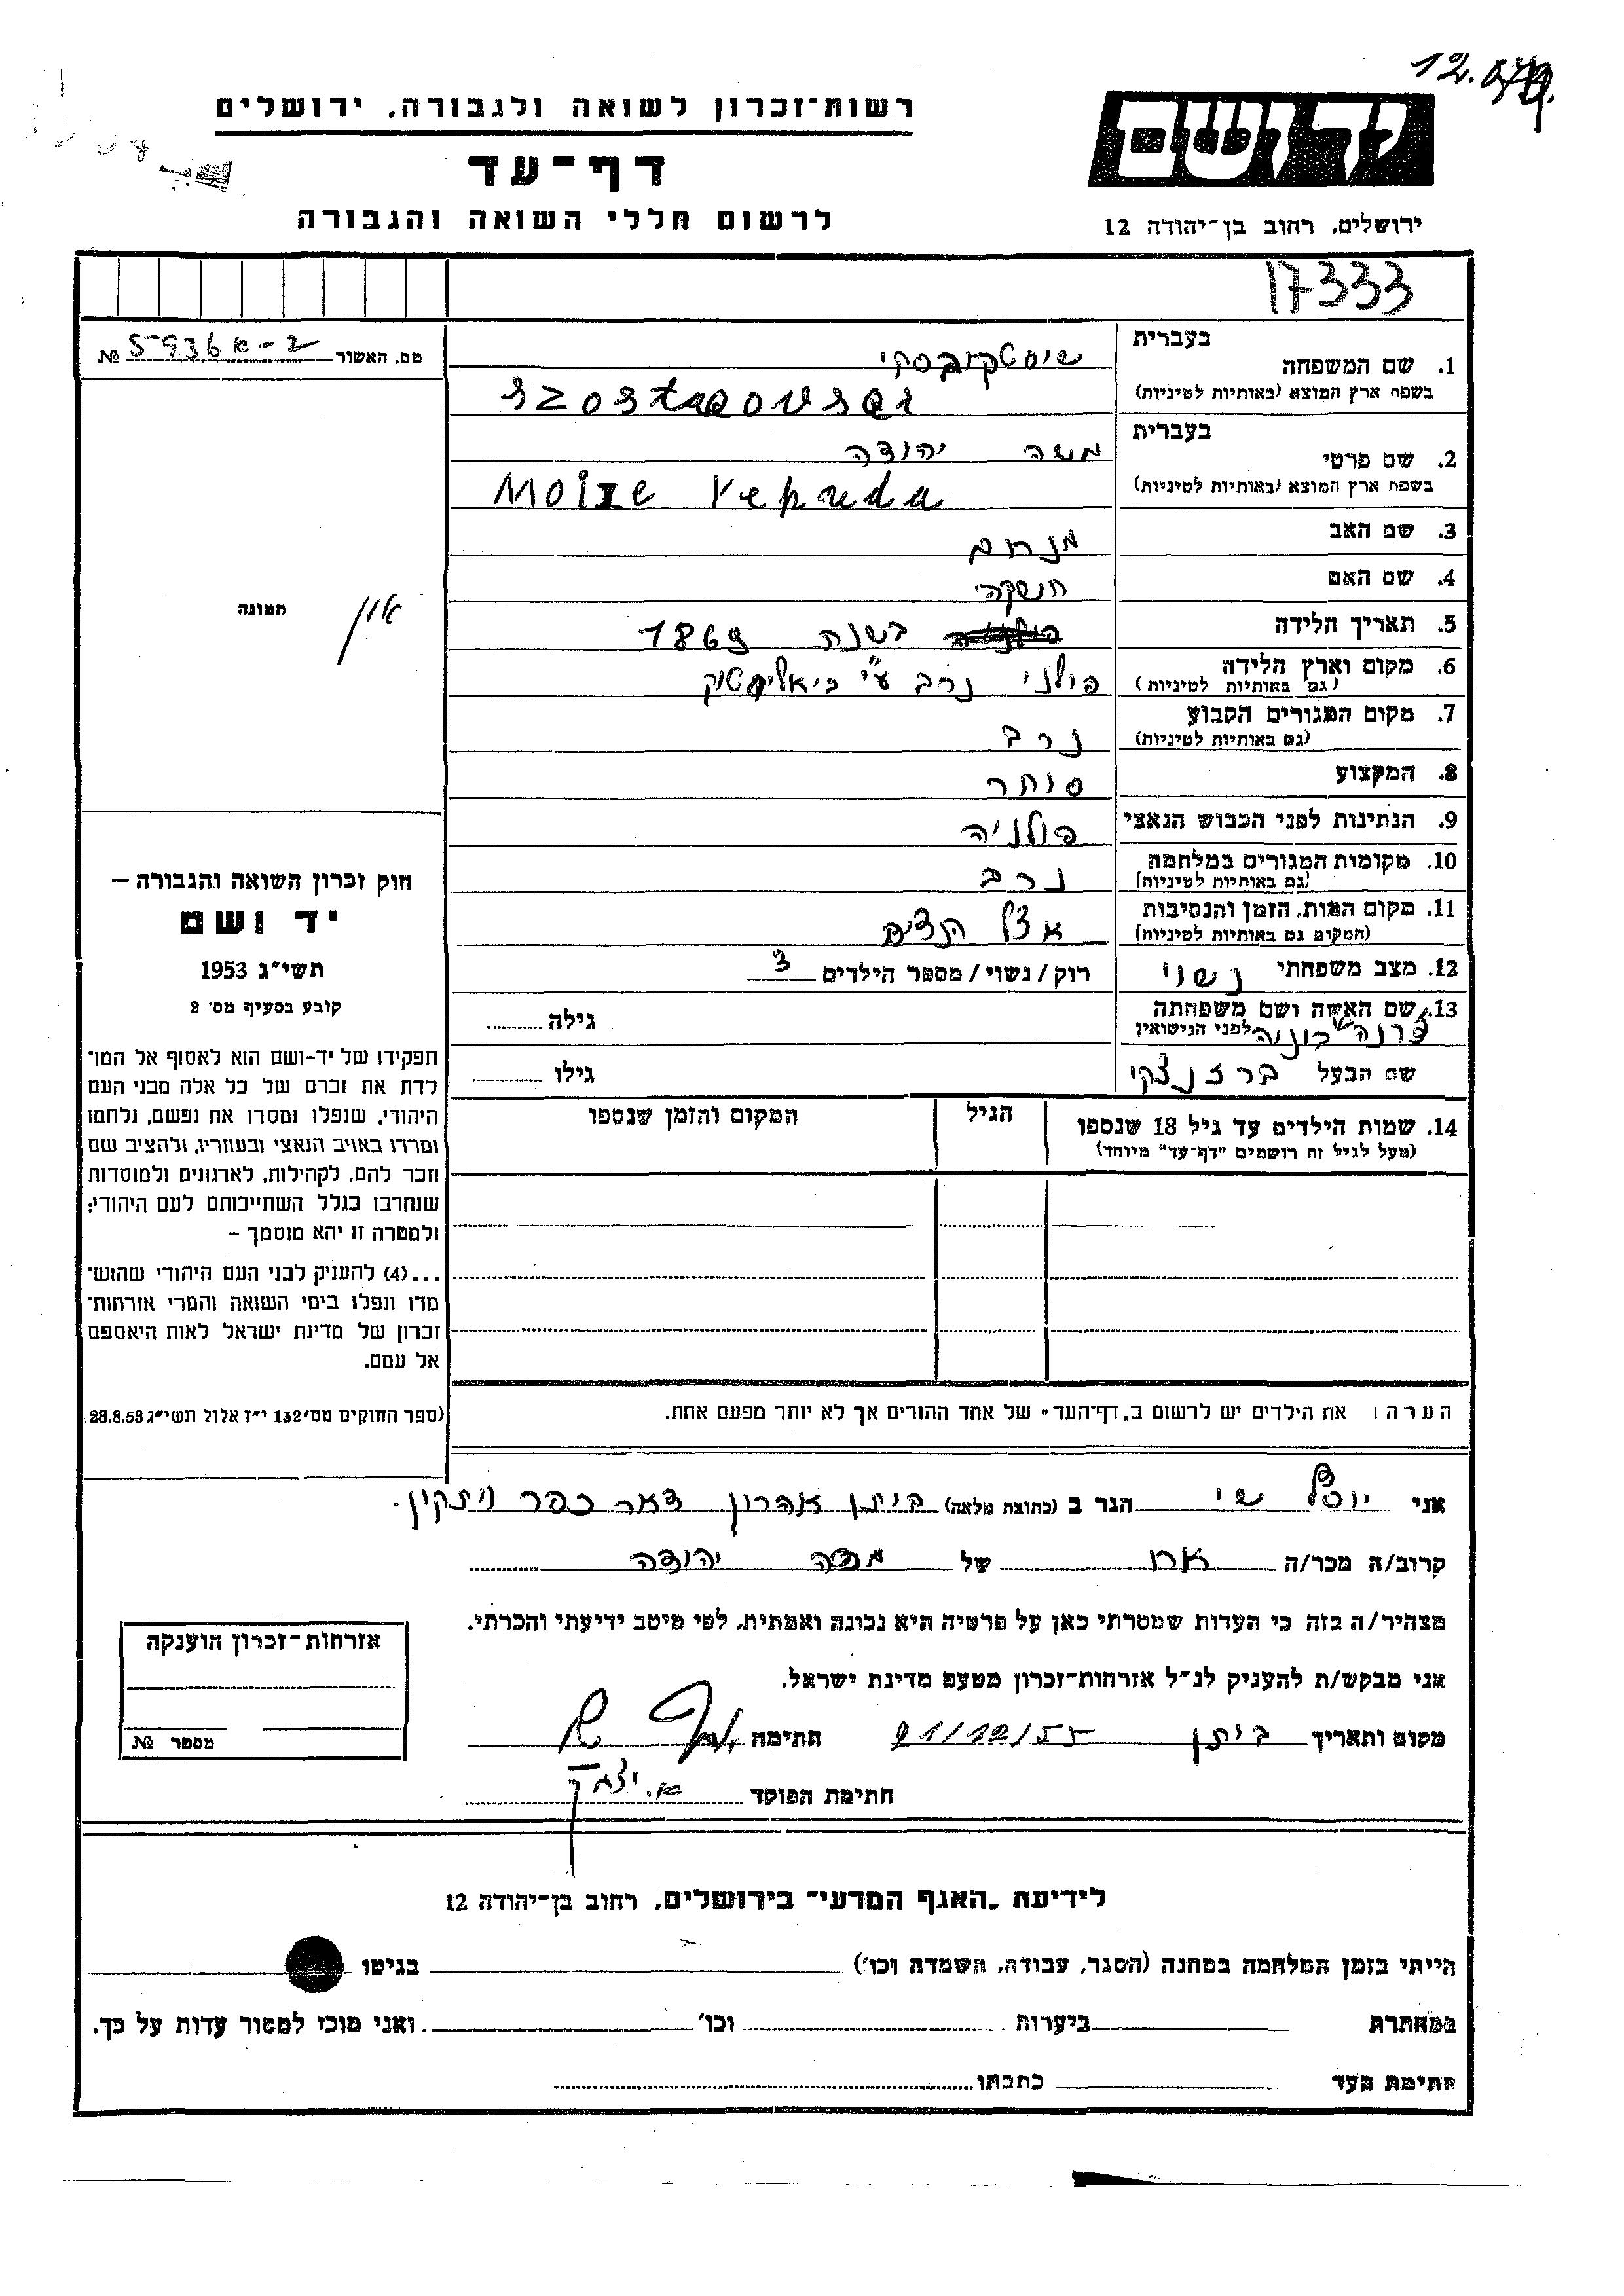 רשות־זכרון לשואה ולגבורה, ירושלים
דף־עד
לרשום חללי השואה והגבורה
יד ושם
ירושלים, רחוב בן־יהודה 12
17333
מס. האשור № 5936 א-2
בעברית
1. שם המשפחה שוסטקובסקי
בשפת ארץ המוצא (באותיות לטיניות)
בעברית
2. שם פרטי משה יהודה
בשפת ארץ המוצא (באותיות לטיניות) Moize Yepuda
3. שם האב מנחם
4. שם האם חשקה
5. תאריך הלידה בשנת 1869
6. מקום וארץ הלידה פולני נרב ע"י ביאליסטוק
(גם באותיות לטיניות)
7. מקום המגורים הקבוע נרב
(גם באותיות לטיניות)
8. המקצוע סוחר
9. הנתינות לפני הכבוש הנאצי פולניה
10. מקומות המגורים במלחמה נרב
(גם באותיות לטיניות)
11. מקום המות, הזמן והנסיבות אצל הנצים
(המקום גם באותיות לטיניות)
12. מצב משפחתי נשוי רוק/נשוי/מספר הילדים 3
13. שם האשה ושם משפחתה גילה
לפני הנישואין
שם הבעל ברזנצקי גילו
14. שמות הילדים עד גיל 18 שנספו הגיל המקום והזמן שנספו
(מעל לגיל זה רושמים "דף־עד" מיוחד)
הערה: את הילדים יש לרשום ב"דף־העד" של אחד ההורים אך לא יותר מפעם אחת.
תמונה אין
חוק זכרון השואה והגבורה —
יד ושם
תשי"ג 1953
קובע בסעיף מס' 2
תפקידו של יד-ושם הוא לאסוף אל המו־
לדת את זכרם של כל אלה מבני העם
היהודי, שנפלו ומסרו את נפשם, נלחמו
ומרדו באויב הנאצי ובעוזריו, ולהציב שם
וזכר להם, לקהילות, לארגונים ולמוסדות
שנחרבו בגלל השתייכותם לעם היהודי;
ולמטרה זו יהא מוסמך —
...(4) להעניק לבני העם היהודי שהוש־
מדו ונפלו בימי השואה והמרי אזרחות־
זכרון של מדינת ישראל לאות היאספם
אל עמם.
(ספר החוקים מס' 132 י"ז אלול תשי"ג 28.8.53)
אני יוסף שי הגר ב (כתובת מלאה) ביתן אהרון דאר כפר ויתקין.
קרוב/ה מכר/ה אח של משה יהודה
מצהיר/ה בזה כי העדות שמסרתי כאן על פרטיה היא נכונה ואמתית, לפי מיטב ידיעתי והכרתי.
אני מבקש/ת להעניק לנ"ל אזרחות־זכרון מטעם מדינת ישראל.
מקום ותאריך ביתן 21/12/55 חתימה
חתימת הפוקד א. יצחק
אזרחות־זכרון הוענקה
מספר №
לידיעת "האגף המדעי" בירושלים, רחוב בן־יהודה 12
הייתי בזמן המלחמה במחנה (הסגר, עבודה, השמדה וכו') בגיטו
במחתרת ביערות וכו' ואני מוכן למסור עדות על כך.
חתימת העד כתבתו